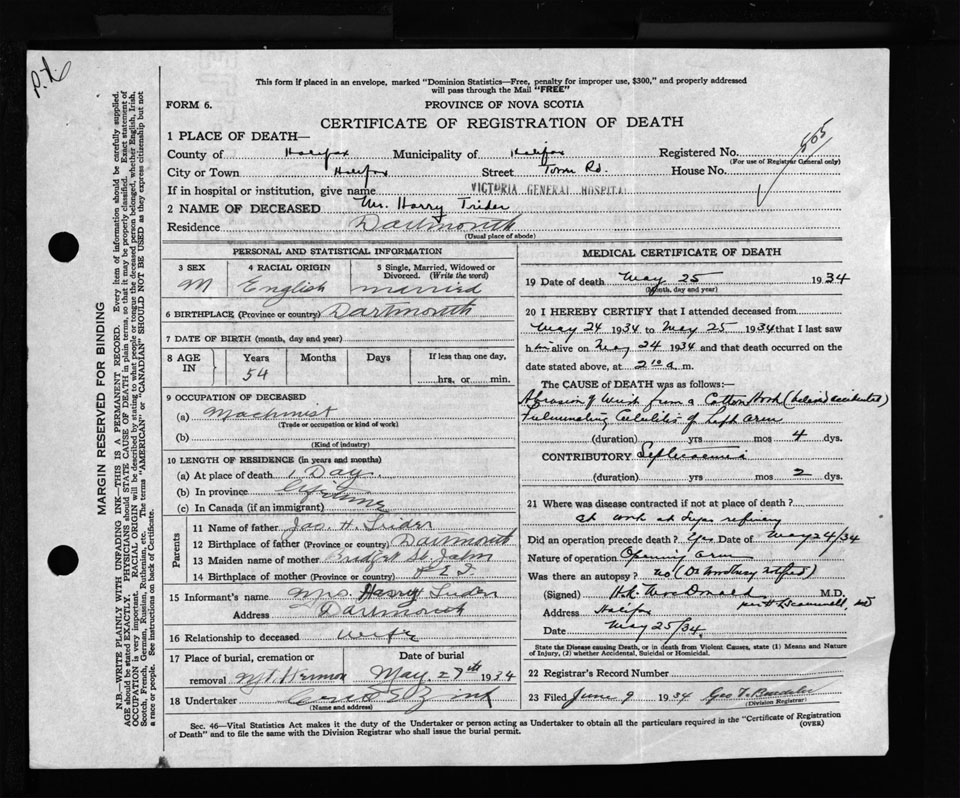 P.L.
This form if placed in an envelope, marked "Dominion Statistics—Free, penalty for improper use, $300," and properly addressed
will pass through the Mail "FREE"
FORM 6.
PROVINCE OF NOVA SCOTIA
CERTIFICATE OF REGISTRATION OF DEATH
565
1 PLACE OF DEATH—
County of Halifax Municipality of Halifax Registered No.
(For use of Registrar General only)
City or Town Halifax Street Tower Rd. House No.
If in hospital or institution, give name VICTORIA GENERAL HOSPITAL
2 NAME OF DECEASED Mr. Harry Trider
Residence Dartmouth
(Usual place of abode)
PERSONAL AND STATISTICAL INFORMATION
3 SEX 4 RACIAL ORIGIN 5 Single, Married, Widowed or Divorced. (Write the word)
M English married
6 BIRTHPLACE (Province or country) Dartmouth
7 DATE OF BIRTH (month, day and year)
8 AGE IN Years Months Days If less than one day,
54 hrs. or min.
9 OCCUPATION OF DECEASED
(a) Machinist
(Trade or occupation or kind of work)
(b)
(Kind of industry)
10 LENGTH OF RESIDENCE (in years and months)
(a) At place of death 1 Day
(b) In province Lifetime
(c) In Canada (if an immigrant)
Parents
11 Name of father Jas. H. Trider
12 Birthplace of father (Province or country) Dartmouth
13 Maiden name of mother St. John
14 Birthplace of mother (Province or country) P E I
15 Informant's name Mrs. Harry Trider
Address Dartmouth
16 Relationship to deceased wife
17 Place of burial, cremation or removal Date of burial
Mt. Hermon May 27th 1934
18 Undertaker Zink
(Name and address)
MEDICAL CERTIFICATE OF DEATH
19 Date of death May 25 1934
(Month, day and year)
20 I HEREBY CERTIFY that I attended deceased from
May 24 1934 to May 25 1934 that I last saw
him alive on May 24 1934 and that death occurred on the
date stated above, at 2 10 a m.
The CAUSE of DEATH was as follows:
Abrasion of Wrist from a Cotton Hook (believed accidental)
Fulminating Cellulitis of Left Arm
(duration) yrs mos 4 dys.
CONTRIBUTORY Septicaemia
(duration) yrs mos 2 dys.
21 Where was disease contracted if not at place of death?
At work at Sugar refinery
Did an operation precede death? Yes Date of May 24/34
Nature of operation Opening arm
Was there an autopsy? No
(Signed) H.K. MacDonald M.D.
Address Halifax
Date May 25/34.
State the Disease causing Death, or in death from Violent Causes, state (1) Means and Nature
of Injury, (2) whether Accidental, Suicidal or Homicidal.
22 Registrar's Record Number
23 Filed June 9 1934 Geo T.
(Division Registrar)
Sec. 46—Vital Statistics Act makes it the duty of the Undertaker or person acting as Undertaker to obtain all the particulars required in the "Certificate of Registration
of Death" and to file the same with the Division Registrar who shall issue the burial permit.
(OVER)
MARGIN RESERVED FOR BINDING
N.B.—WRITE PLAINLY WITH UNFADING INK—THIS IS A PERMANENT RECORD. Every item of information should be carefully supplied.
AGE should be stated EXACTLY. PHYSICIANS should STATE CAUSE OF DEATH in plain terms, so that it may be properly classified. Exact statement of
OCCUPATION is very important. RACIAL ORIGIN will be described by stating to what people or tongue the deceased person belonged, whether English, Irish,
Scotch, French, German, Russian, Ruthenian, etc. The terms "AMERICAN" or "CANADIAN" SHOULD NOT BE USED as they express citizenship but not
a race or people. See instructions on back of Certificate.